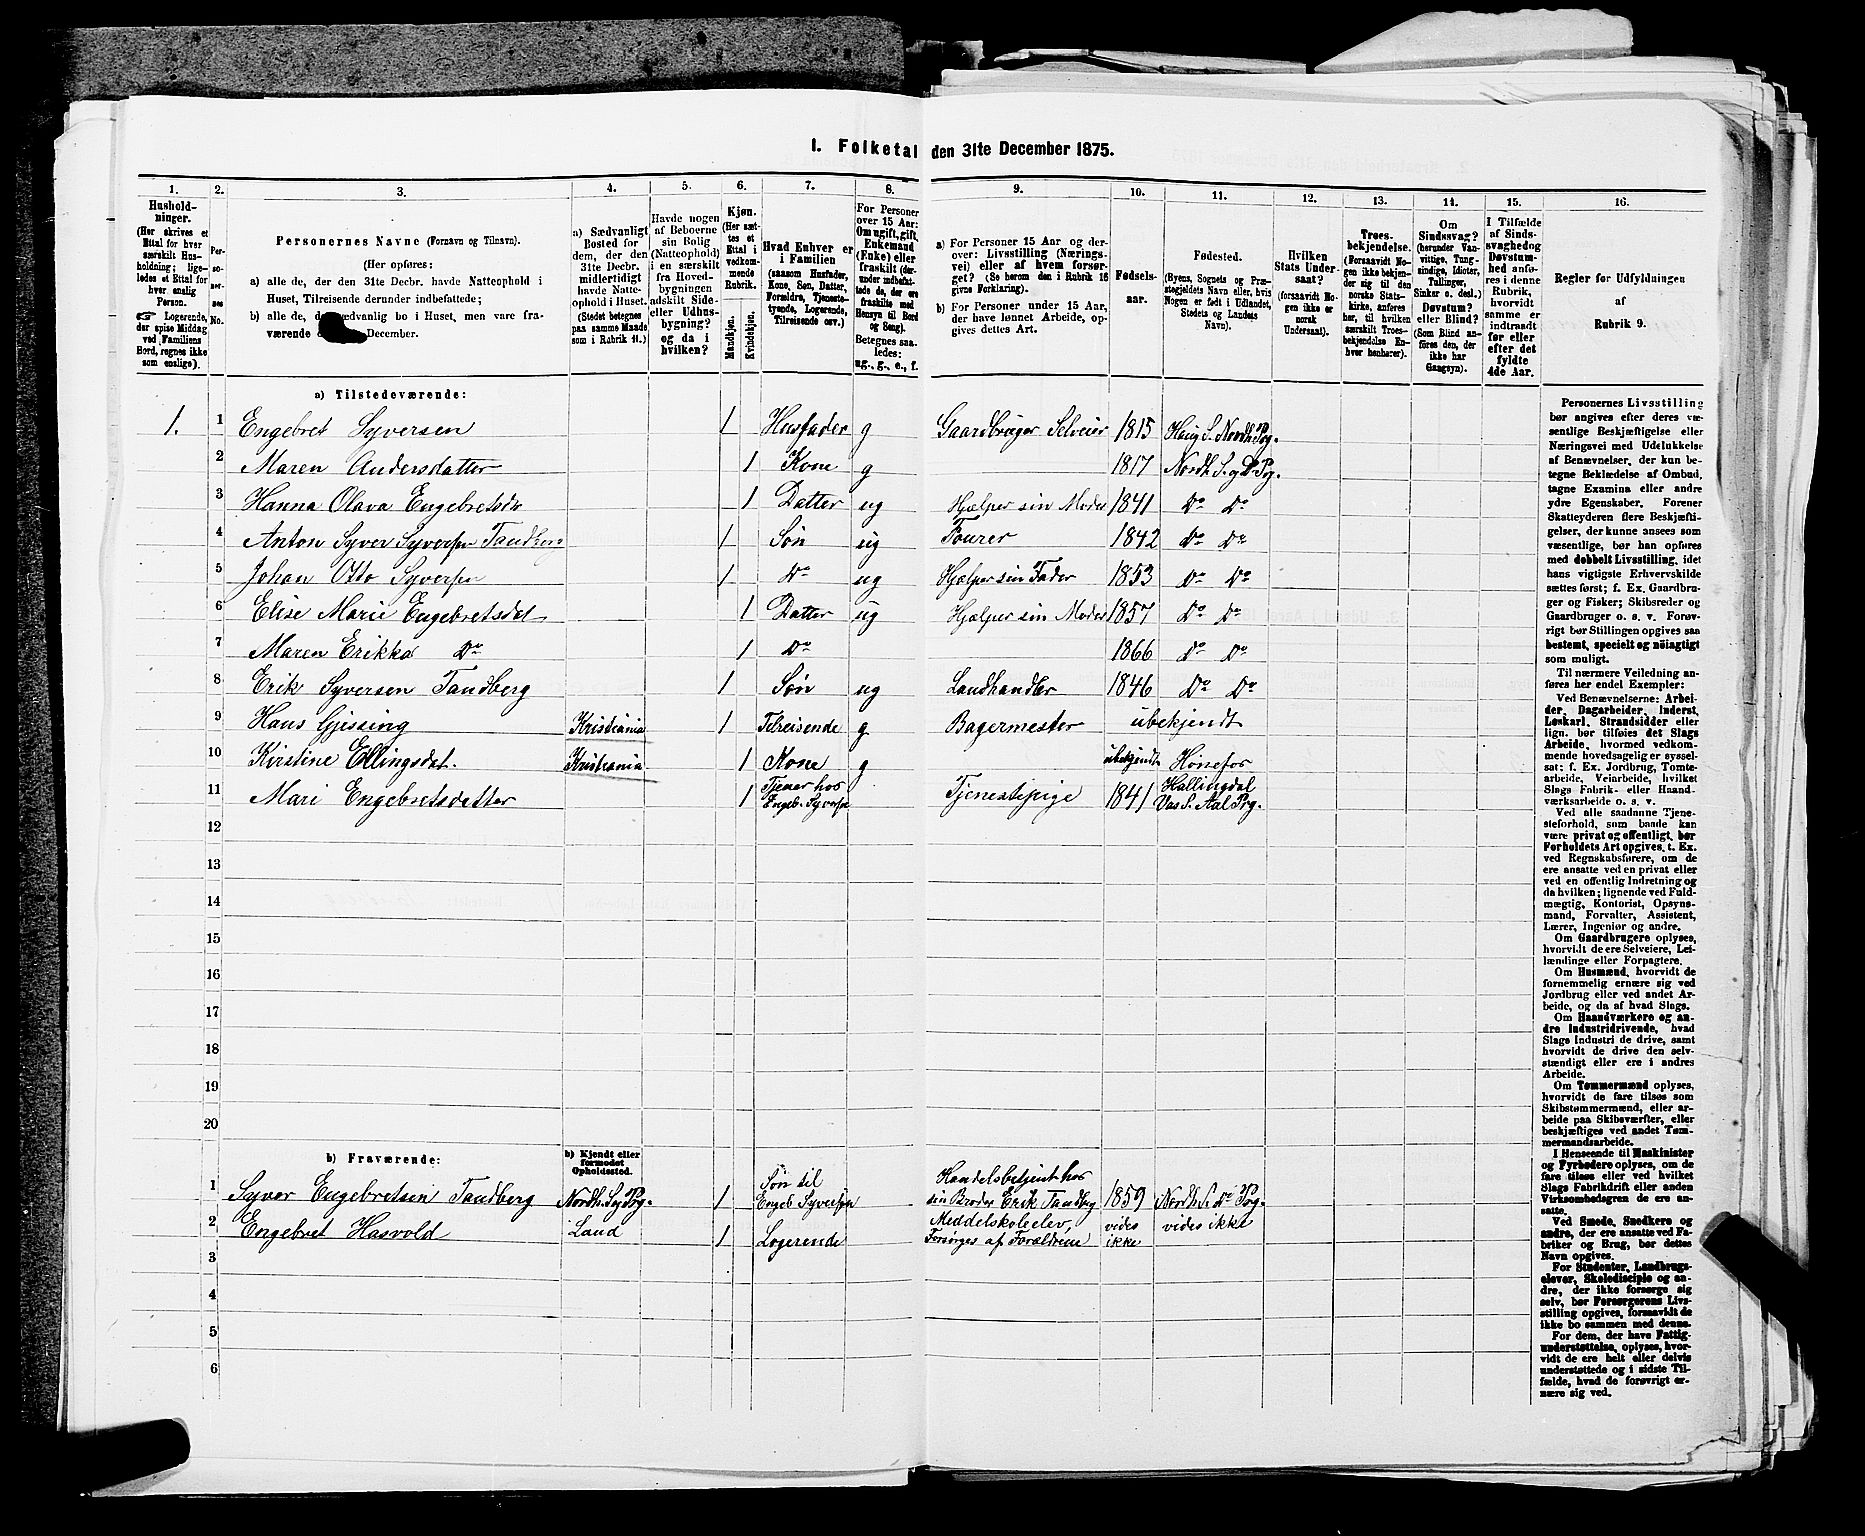 I. Folketal den 31te December 1875.
1. 2. 3. 4. 5. 6. 7. 8. 9. 10. 11. 12. 13. 14. 15. 16.
Hushold-
ninger.
(Her skrives et
Ettal for hver
særskilt Hus-
holdning; lige-
ledes et Ettal
for hver
enslig
Person.
Logerende,
der spise Middag
ved Familiens
Bord, regnes ikke
som enslige).
Per-
so-
ner-
nes
No.
Personernes Navne (Fornavn og Tilnavn).
(Her opføres:
a) alle de, der den 31te Decbr. havde Natteophold i
Huset, Tilreisende derunder indbefattede;
b) alle de, de sædvanlig bo i Huset, men vare fra-
værende December.
a) Sædvanligt
Bosted for
dem, der den
31te Decbr.
midlertidigt
havde Natte-
ophold i Huset.
(Stedet betegnes
paa samme Maade
som i Rubrik 11.)
Havde nogen
af Beboerne
sin Bolig
(Natteophold)
i en særskilt
fra Hoved-
bygningen
adskilt Side-
eller Udhus-
bygning?
og da i
hvilken?
Kjøn.
(Her sæt-
tes et
Ettal i
vedkom-
mende
Rubrik.
Mandkjøn.
Kvindekjøn.
Hvad Enhver er
i Familien
(saasom Husfader,
Kone, Søn, Datter,
Forældre, Tjeneste-
tyende, Logerende,
Tilreisende osv.)
For Personer
over 15 Aar:
Om ugift, gift,
Enkemand
(Enke) eller
fraskilt (der-
under indbefat-
tede de, der ere
fraskilte med
Hensyn til Bord
og Seng).
Betegnes saa-
ledes:
ug., g., e., f.
a) For Personer 15 Aar og der-
over: Livsstilling (Nærings-
vei) eller af hvem forsør-
get? (Se herom den i Rubrik 16
givne Forklaring).
b) For Personer under 15 Aar,
der have lønnet Arbeide, op-
gives dettes Art.
Fødsels-
aar.
Fødested.
(Byens, Sognets og Præ-
stegjeldets Navn eller, hvis
Nogen er født i Udlandet,
Stedets og Landets
Navn).
Hvilken
Stats Under-
saat?
(forsaavidt No-
gen ikke er
norsk
Undersaat).
Troes-
bekjendelse.
(Forsaavidt No-
gen ikke bekjen-
der sig til den
norske Stats-
kirke, anføres
her, til hvilken
særskilt Troes-
bekjendelse En-
hver henhører).
Om
Sindssvag?
(herunder Van-
vittige, Tung-
sindige, Idioter,
Tullinger,
Sinker o. desl.)
Døvstum?
eller Blind?
(Som Blind an-
føres den, der
ikke har
Gangsyn).
I Tilfælde
af Sinds-
svaghed og
Døvstum-
hed anfø-
res i denne
Rubrik,
hvorvidt
samme er
indtraadt
før eller
efter det
fyldte
4de Aar.
Regler for Udfyldningen
af
Rubrik 9.
a) Tilstedeværende:
1. 1 Engebret Syversen 1 Husfader g Gaardbruger Selveier 1815 Haug S. Nordh. Pg.
2 Maren Andersdatter 1 Kone g 1817 Nordh. S. og Do Pg.
3 Hanna Olava Engebretsdr 1 Datter ug Hjælper sin Moder 1841 Do Do
4 Anton Syver Syversen Tandberg 1 Søn ug Fourer 1842 Do Do
5 Johan Otto Syversen 1 Do ug Hjælper sin Fader 1853 Do Do
6 Elise Marie Engebretsdat 1 Datter ug Hjælper sin Moder 1857 Do Do
7 Maren Erikka Do 1 Do 1866 Do Do
8 Erik Syversen Tandberg 1 Søn ug Landhandler 1846 Do Do
9 Hans Gjissing Kristiania 1 Tilreisende g Bagermester ubekjendt
10 Kirstine Ellingsdat. Kristiania 1 Kone g ubekjendt Hønefos
11 Mari Engebretsdatter 1 Tjener hos Engeb. Syversen Tjenestepige 1841 Hallingdal Vas S. Aal Pg.
12
13
14
15
16
17
18
19
20
b) Fraværende:
b) Kjendt eller
formodet
Opholdssted.
1 Syver Engebretsen Tandberg Nordh. S. og Pg. 1 Søn til Engeb. Syversen Handelsbetjent hos sin Broder Erik Tandberg 1859 Nordh. S. Do Pg.
2 Engebret Hasvold Land 1 Logerende Meddelskoleelev, Forsørges af Forældrene vides ikke vides ikke
3
4
5
6
Personernes Livsstilling
bør angives efter deres væ-
sentlige Beskjæftigelse eller
Næringsvei med Udelukkelse
af Benævnelser, der kun be-
tegne Beklædelse af Ombud,
tagne Examina eller andre
ydre Egenskaber. Forener
Skatteyderen flere Beskjæfti-
gelser, der kunne ansees som
væsentlige, bør han opføres
med dobbelt Livsstilling, idet
hans vigtigste Erhvervskilde
sættes først; f. Ex. Gaardbru-
ger og Fisker; Skibsreder og
Gaardbruger o. s. v. Forøv-
rigt bør Stillingen opgives saa
bestemt, specielt og nöiagtigt
som muligt.
Til nærmere Veiledning an-
føres her endel Exempler:
Ved Benævnelserne: Arbei-
der, Dagarbeider, Inderst,
Løskarl, Strandsidder eller
lign. bør tilføies det Slags
Arbeide, hvormed vedkom-
mende hovedsagelig er syssel-
sat: f. Ex. Jordbrug, Tomte-
arbeide, Veiarbeide, hvilket
Slags Fabrik- eller Haand-
værksarbeide o. s. v.
Ved alle saadanne Tjene-
steforhold, som baade kan
være privat og offentligt, bør
Forholdets Art opgives. t. Ex.
ved Regnskabsførere, om de
ere ansatte ved en privat eller
ved en offentlig Indretning og
da hvilken; lignende ved Fuld-
mægtig, Kontorist, Opsyns-
mand, Forvalter, Assistent,
Lærer, Ingeniør og andre.
Om Gaardbrugere oplyses,
hvorvidt de ere Selveiere, Lei-
lændinge eller Forpagtere.
Om Husmænd, hvorvidt de
fornemmelig ernære sig ved
Jordbrug eller ved andet Ar-
beide, og da af hvad Slags.
Om Haandværkere og an-
dre Industridrivende, hvad
Slags Industri de drive, samt
hvorvidt de drive den selv-
stændigt eller ere i andres
Arbeide.
Om Tømmermænd oplyses,
hvorvidt de fare tilsøs som
Skibstømmermænd, eller ar-
beide paa Skibsværfter, eller
beskjæftiges ved andet Tøm-
mermandsarbeide.
I Henseende til Maskinister
og Fyrbødere oplyses, om de
fare tilsøs eller ved hvilket
Slags Fabrikdrift eller anden
Virksomhedsgren de ere an-
satte.
Ved Smede, Snedkere og
andre, der ere ansatte ved Fa-
briker og Brug, bør dettes
Navn opgives.
For Studenter, Landbrugs-
elever, Skoledisciple og an-
dre, der ikke forsørge sig
selv, bør Forsørgerens Livs-
stilling opgives, forsaavidt de
ikke bo sammen med denne.
For dem, der have Fattig-
understøttelse, oplyses, hvor-
vidt de ere helt eller delvis
understøttede og i sidste Til-
fælde, hvad de forøvrigt er-
nære sig ved.